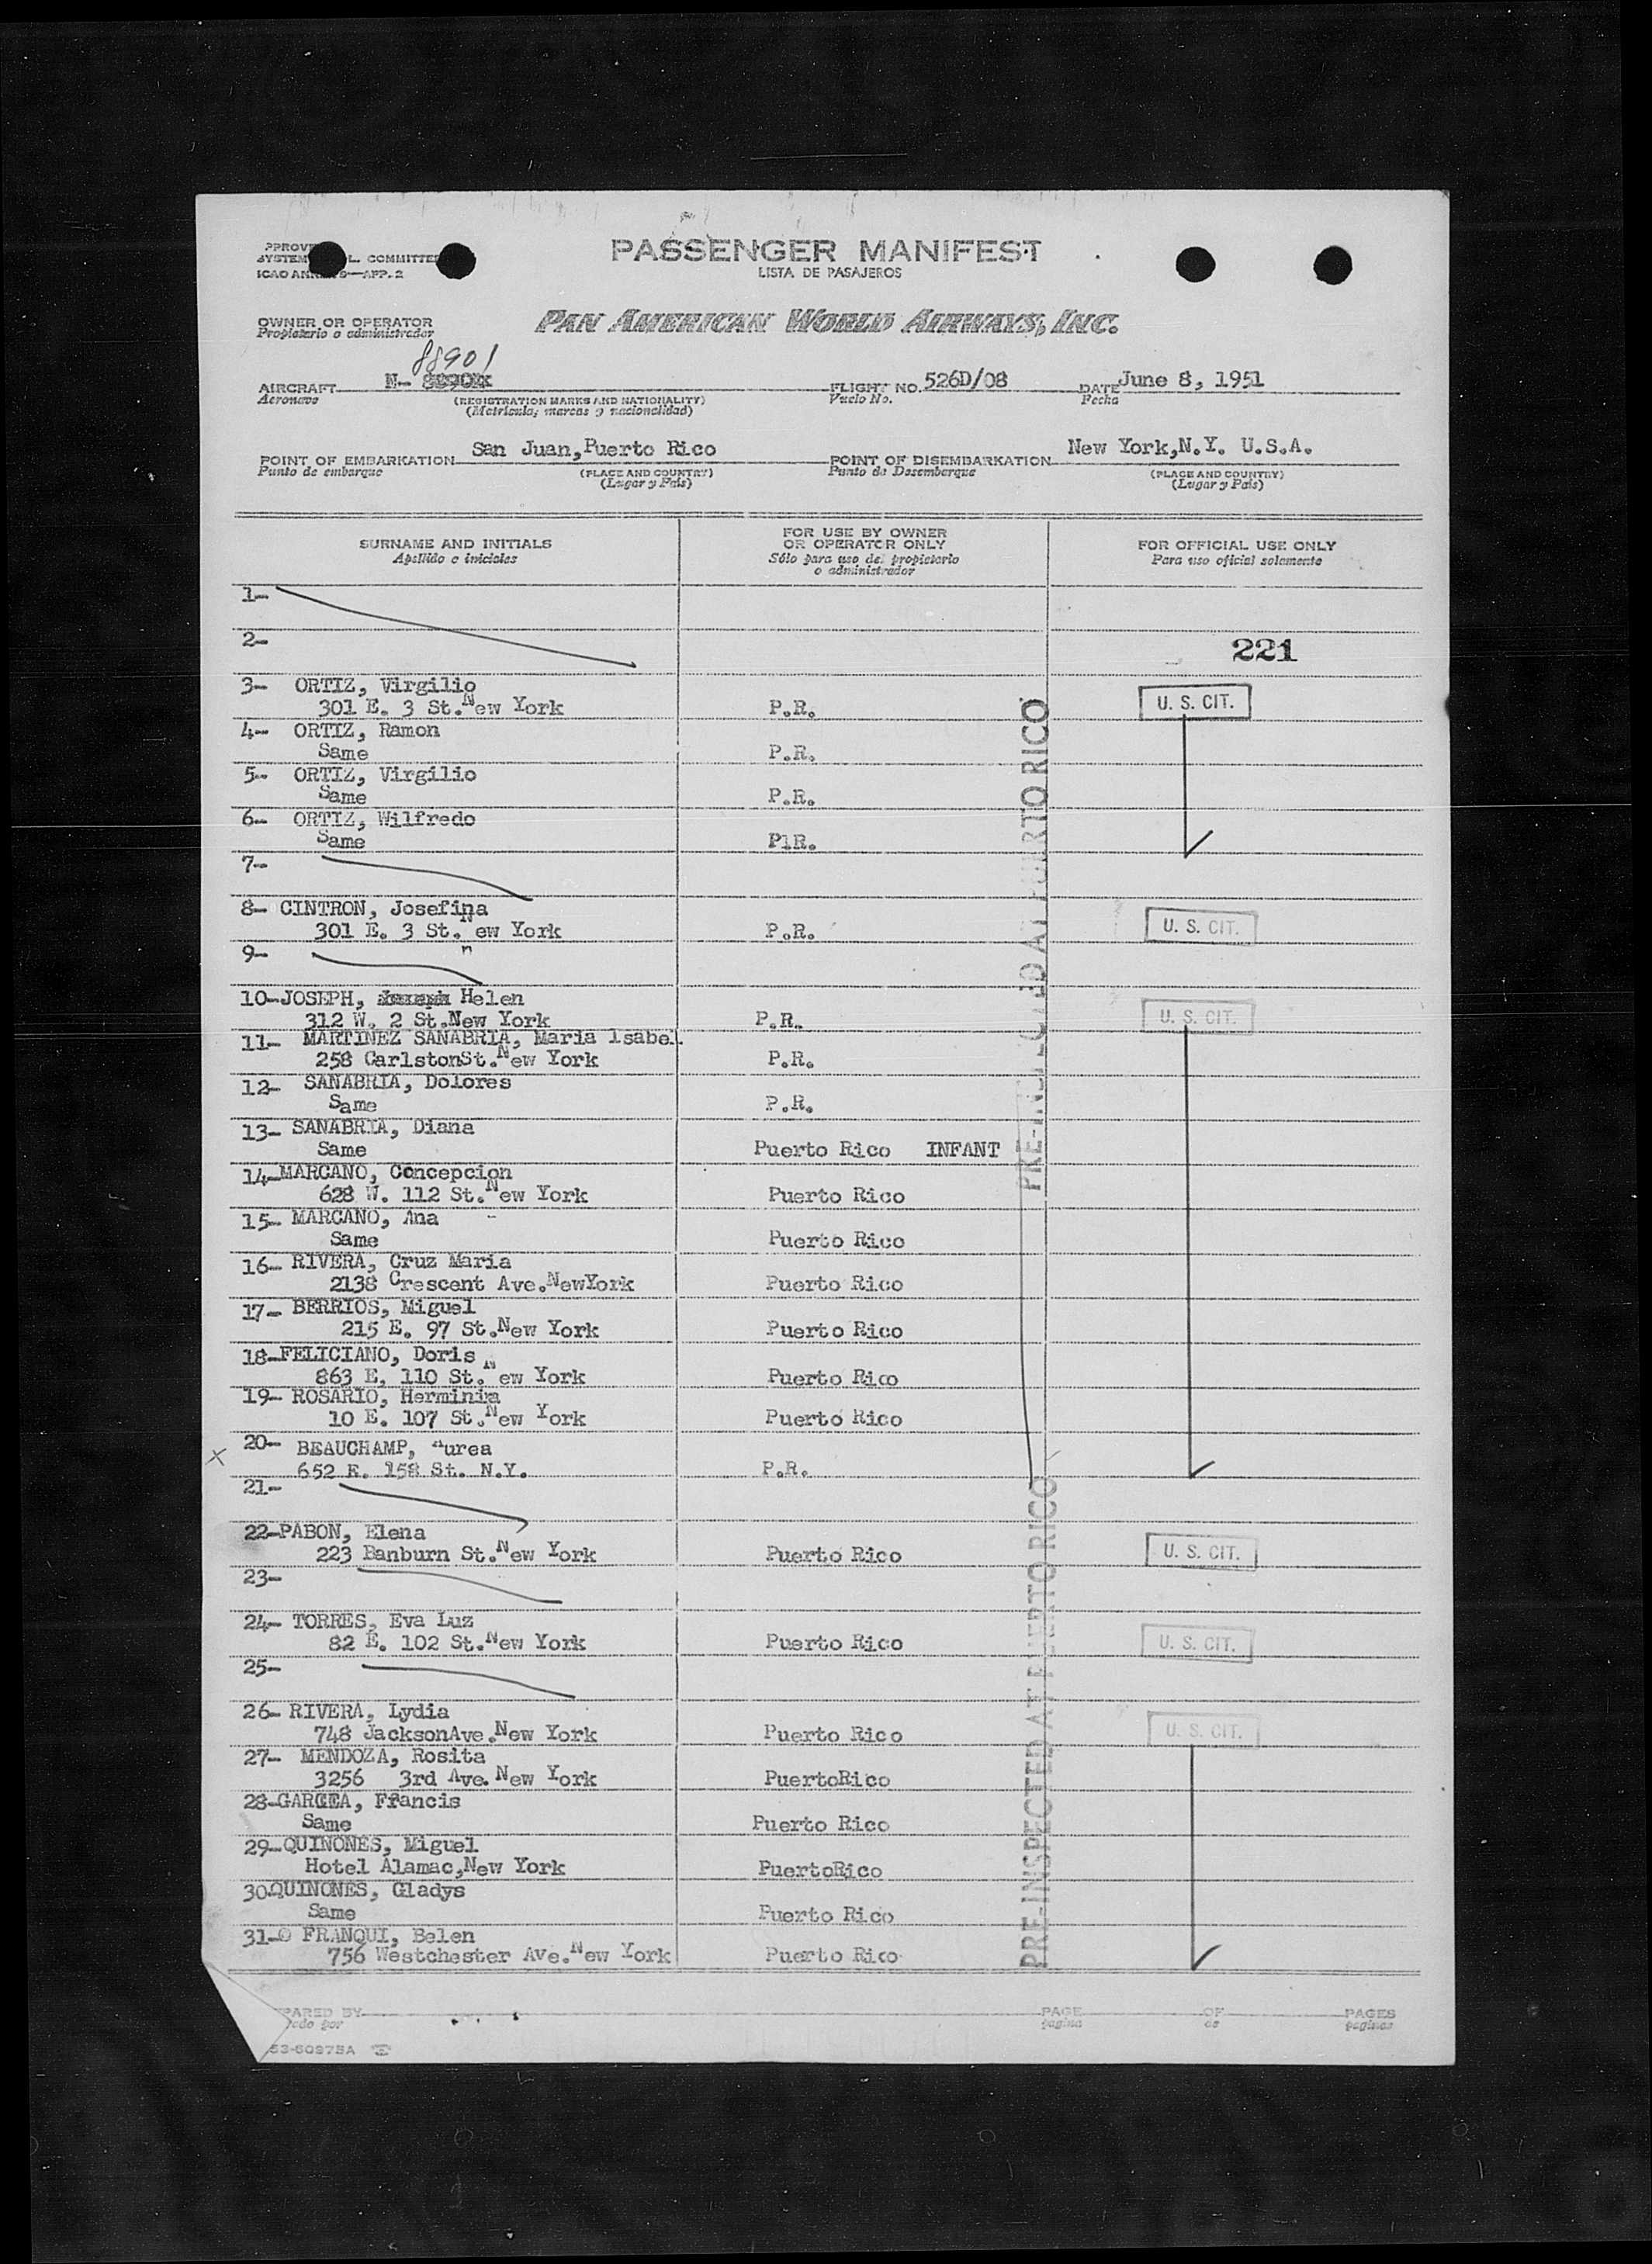 PASSENGER MANIFEST
LISTA DE PASAJEROS
COMMITTEE
APP. 2
OWNER OR OPERATOR
Propietario o administrador
PAN AMERICAN WORLD AIRWAYS, INC.
88901
AIRCRAFT N-
Aeronave
(REGISTRATION MARKS AND NATIONALITY)
(Matricula; marcas y nacionalidad)
FLIGHT NO. 526D/08
Vuelo No.
DATE June 8, 1951
Fecha
POINT OF EMBARKATION San Juan,Puerto Rico
Punto de embarque
(PLACE AND COUNTRY)
(Lugar y País)
POINT OF DISEMBARKATION New York,N.Y. U.S.A.
Punto de Desembarque
(PLACE AND COUNTRY)
(Lugar y País)
SURNAME AND INITIALS
Apellido e iniciales
FOR USE BY OWNER
OR OPERATOR ONLY
Sólo para uso del propietario
o administrador
FOR OFFICIAL USE ONLY
Para uso oficial solamente
1-
2-
221
3- ORTIZ, Virgilio
301 E. 3 St.New York P.R. U. S. CIT.
4- ORTIZ, Ramon
Same P.R.
5- ORTIZ, Virgilio
Same P.R.
6- ORTIZ, Wilfredo
Same P1R.
7-
8- CINTRON, Josefina
301 E. 3 St.New York P.R. U. S. CIT.
9-
10-JOSEPH, Helen
312 W. 2 St.New York P.R. U. S. CIT.
11- MARTINEZ SANABRIA, Maria Isabel
258 CarlstonSt.New York P.R.
12- SANABRIA, Dolores
Same P.R.
13- SANABRIA, Diana
Same Puerto Rico INFANT
14-MARCANO, Concepcion
628 W. 112 St.New York Puerto Rico
15- MARCANO, Ana
Same Puerto Rico
16- RIVERA, Cruz Maria
2138 Crescent Ave.NewYork Puerto Rico
17- BERRIOS, Miguel
215 E. 97 St.New York Puerto Rico
18-FELICIANO, Doris
863 E. 110 St. New York Puerto Rico
19- ROSARIO, Herminia
10 E. 107 St.New York Puerto Rico
20- BEAUCHAMP, Aurea
652 E. 158 St. N.Y. P.R.
21-
22-PABON, Elena
223 Banburn St.New York Puerto Rico U. S. CIT.
23-
24- TORRES, Eva Luz
82 E. 102 St.New York Puerto Rico U. S. CIT.
25-
26- RIVERA, Lydia
748 JacksonAve.New York Puerto Rico U. S. CIT.
27- MENDOZA, Rosita
3256 3rd Ave.New York PuertoRico
28-GARCEA, Francis
Same Puerto Rico
29-QUINONES, Miguel
Hotel Alamac,New York PuertoRico
30QUINONES, Gladys
Same Puerto Rico
31- FRANQUI, Belen
756 Westchester Ave.New York Puerto Rico
PRE-INSPECTED AT PUERTO RICO
PRE-INSPECTED AT PUERTO RICO
PAGE
pagina
OF
de
PAGES
paginas